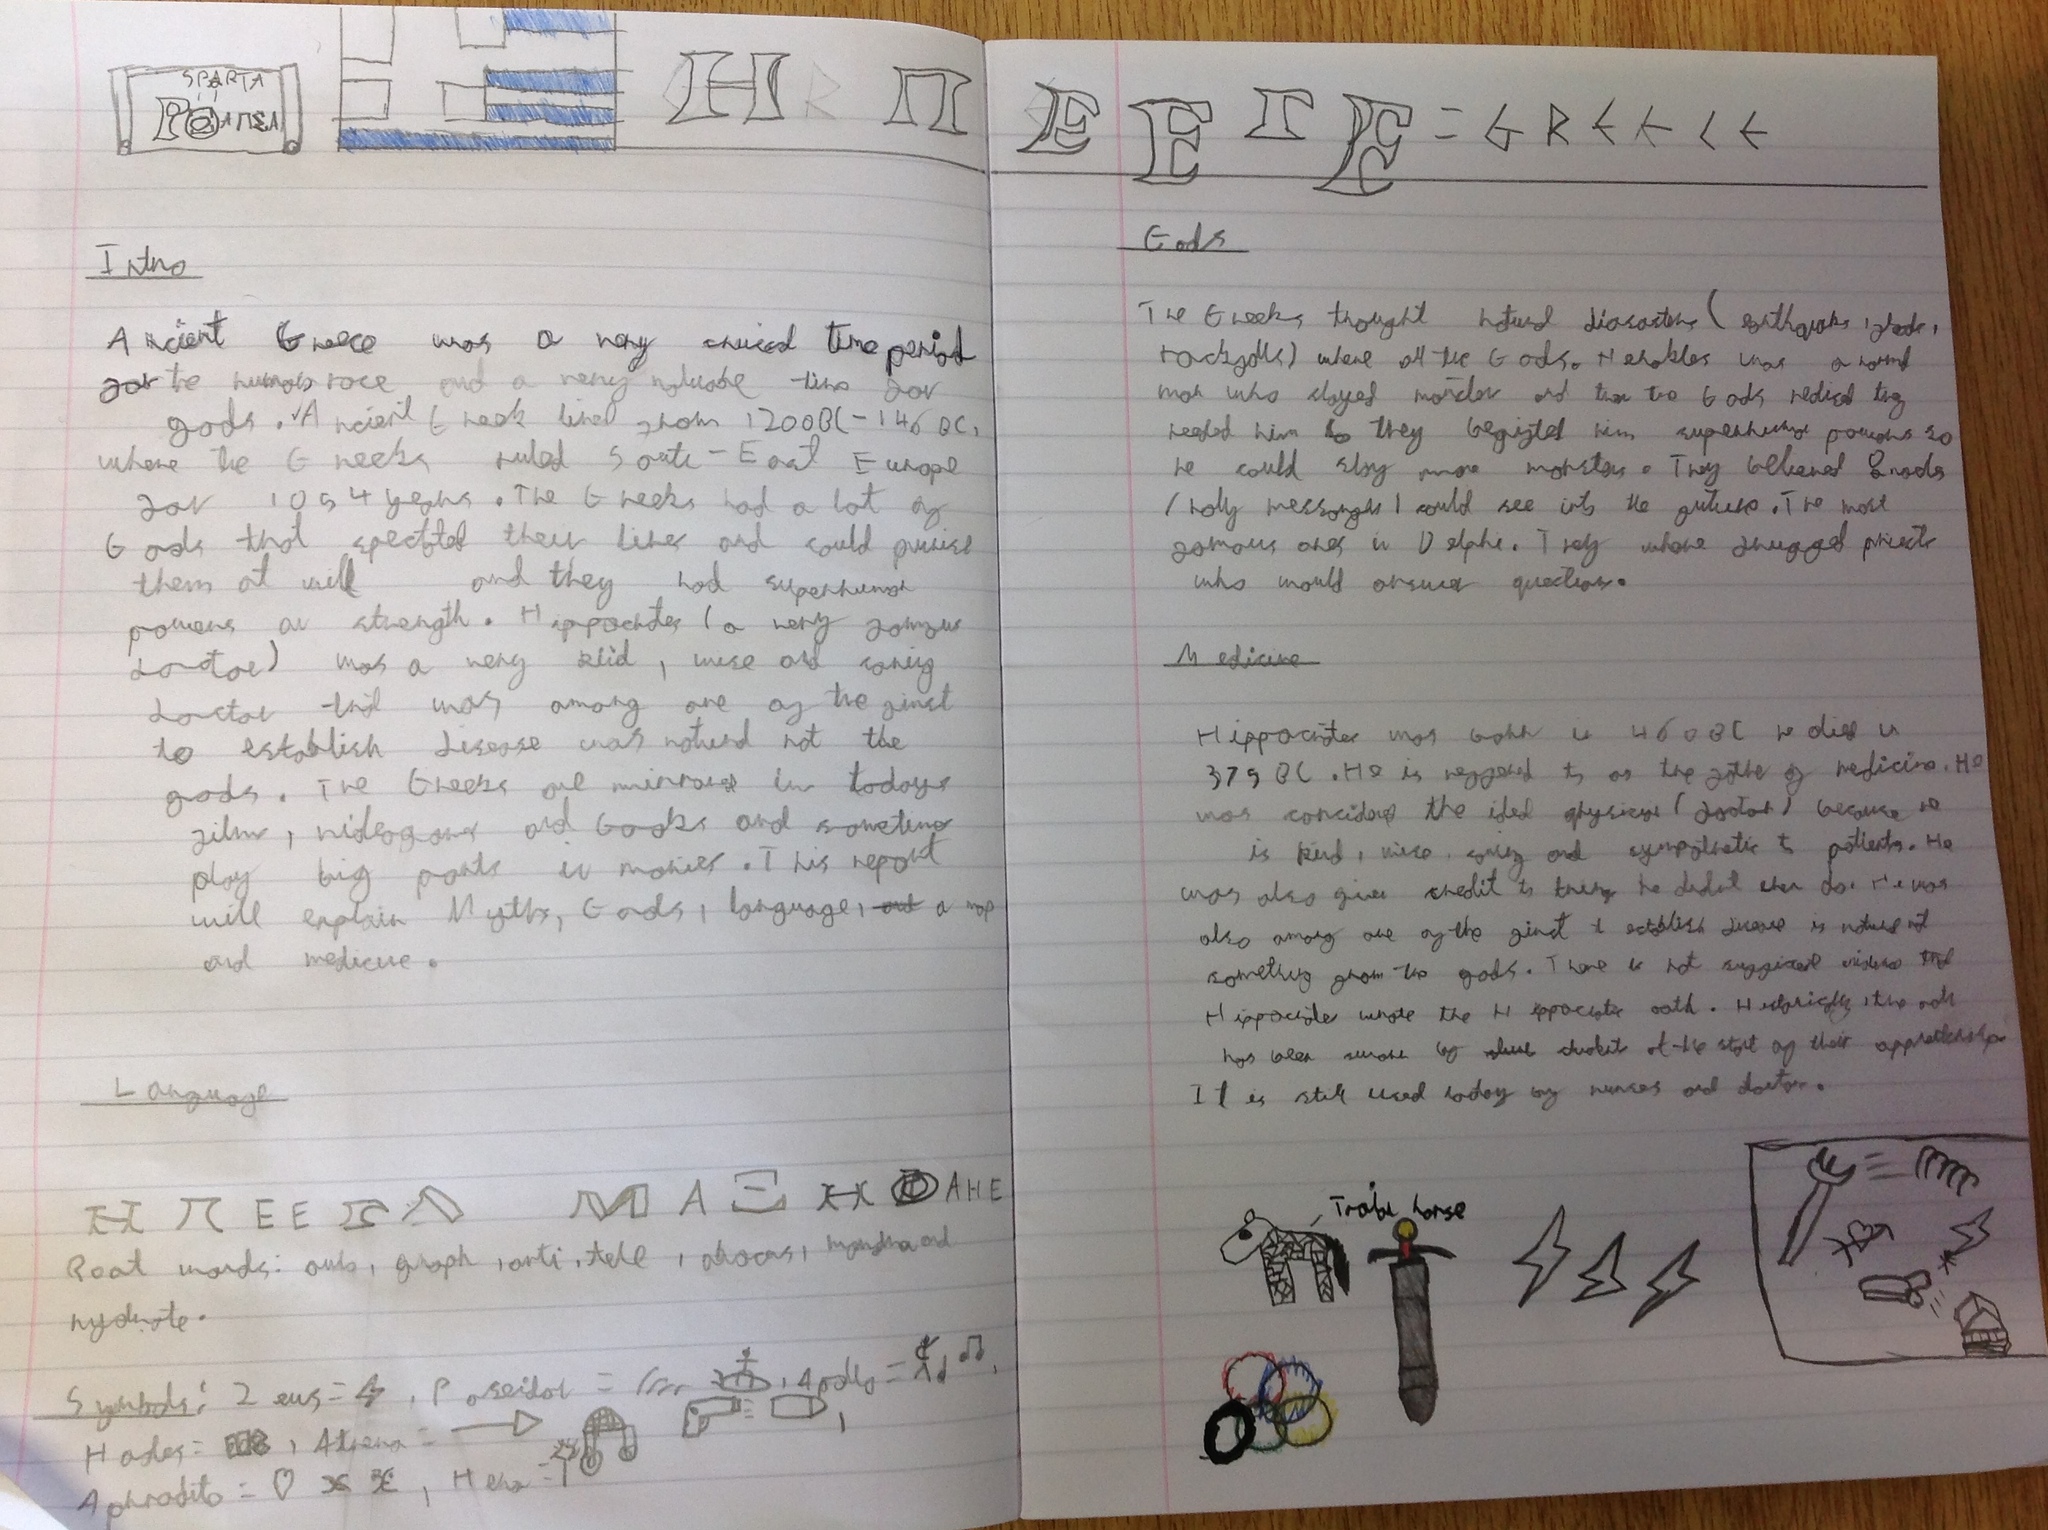 SPARTA
= GREECE
Intro
Ancient Greece was a very crusied time period
for the human race and a very valuable time for
gods. Ancient Greek lived from 1200BC-146BC,
where the Greeks ruled South-East Europe
for 1054 years. The Greeks had a lot of
Gods that their lives and could punish
them at will and they had superhuman
powers or strength. Hippocrites (a very famous
doctor) was a very kiid, wise and caring
doctor that was among one of the first
to establish disease was naturul not the
gods. The Greeks are in todays
films, videogames and books and sometimes
play big parts in movies. This report
will explain Myths, Gods, language, a map
and medicine.
Language
Roat words: auto, graph, anti, tele, and
hydrate.
Symbols: Zeus= , Poseidon = , Apollo=
Hades= , Athena=
Aphrodite = , Hera =
Gods
The Greeks thought naturul (
) where all the Gods. was a normal
man who slayed and then the Gods they
needed him so they him superhuman powers so
he could slay more monsters. They believed
(holy messenges) could see into the future. The most
famous ones in Delphi. They where drugged priests
who would answer questions.
Medicine
Hippocrites was bohn in 460BC he died in
379BC. He is to as the father of medicine. He
was the ideal physicion (doctor) because he
is kind, wise, caring and sympathetic to patients. He
was also given credit to things he didnt even do. He was
also among one of the first to establish disease is naturul not
something from the gods. There is not that
Hippocrites wrote the Hippocratic oath. , the oath
has been by at the start of their
It is still used today by nurses and doctors.
horse